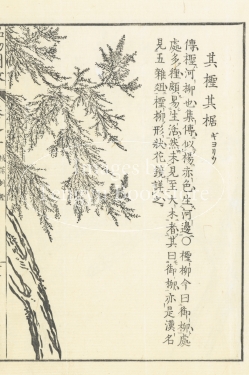 其檉其椐
ギヨリウ
傳檉河柳也集傳似楊赤色生河邊○檉柳今曰御柳處
處多種頗易生活然未見至大木者其曰御柳亦是漢名
見五雜俎檉柳形狀花鏡詳之